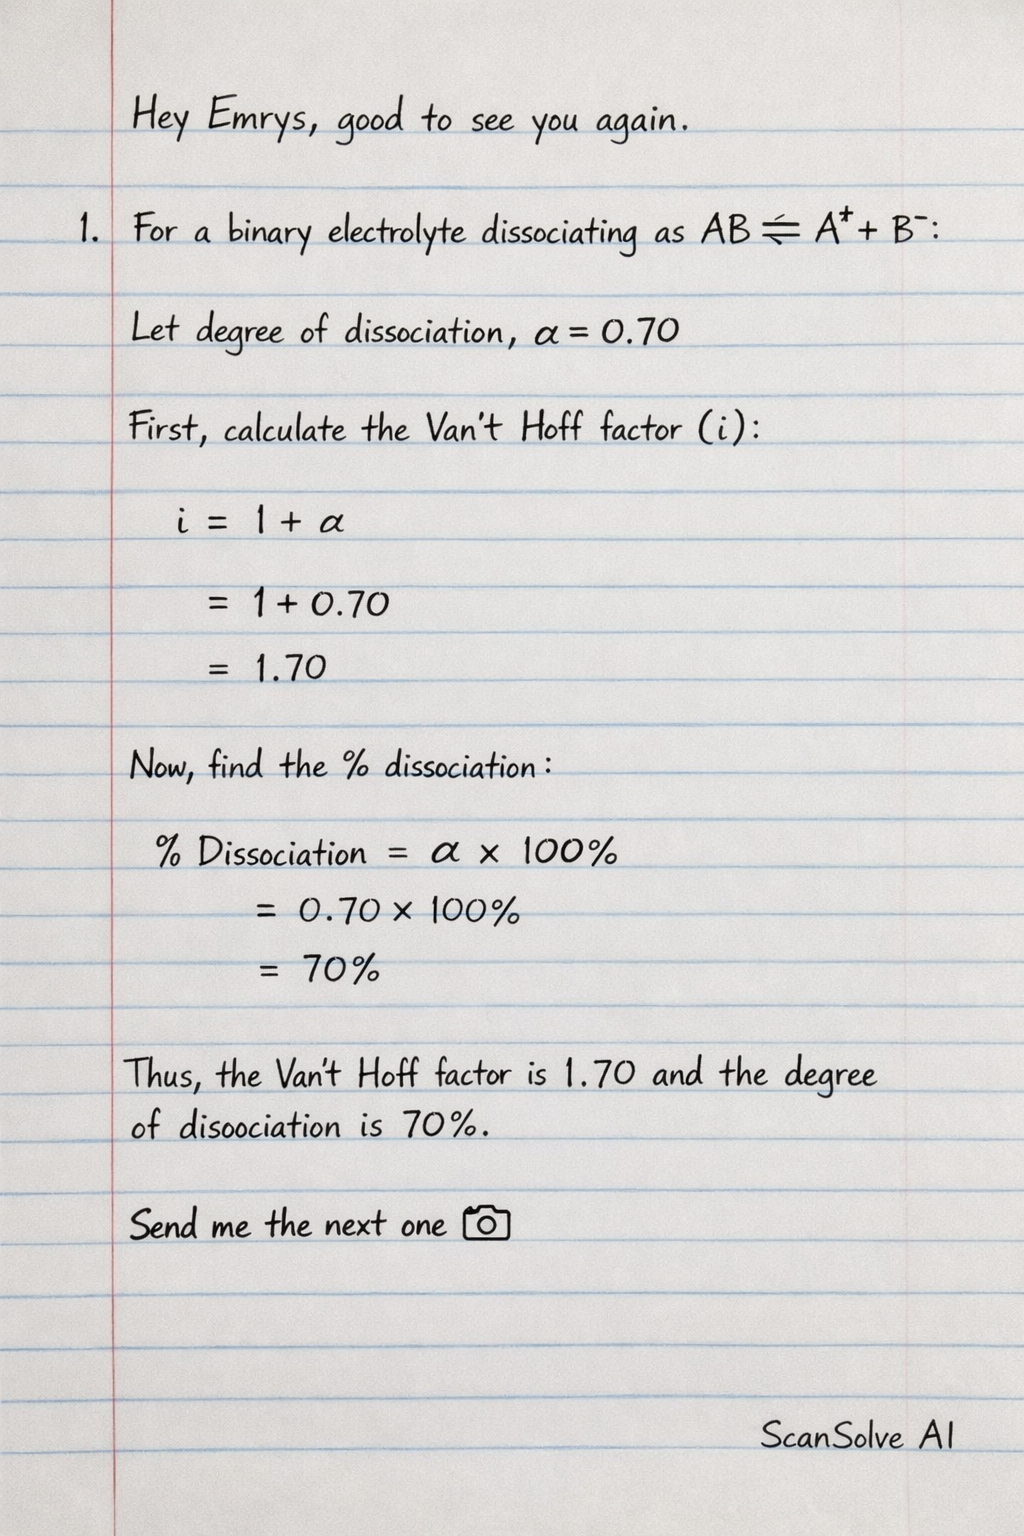 Hey Emrys, good to see you again.
1. For a binary electrolyte dissociating as AB ⇌ A⁺ + B⁻:
Let degree of dissociation, α = 0.70
First, calculate the Van't Hoff factor (i):
i = 1 + α
= 1 + 0.70
= 1.70
Now, find the % dissociation:
% Dissociation = α × 100%
= 0.70 × 100%
= 70%
Thus, the Van't Hoff factor is 1.70 and the degree
of disoociation is 70%.
Send me the next one 📷
ScanSolve AI